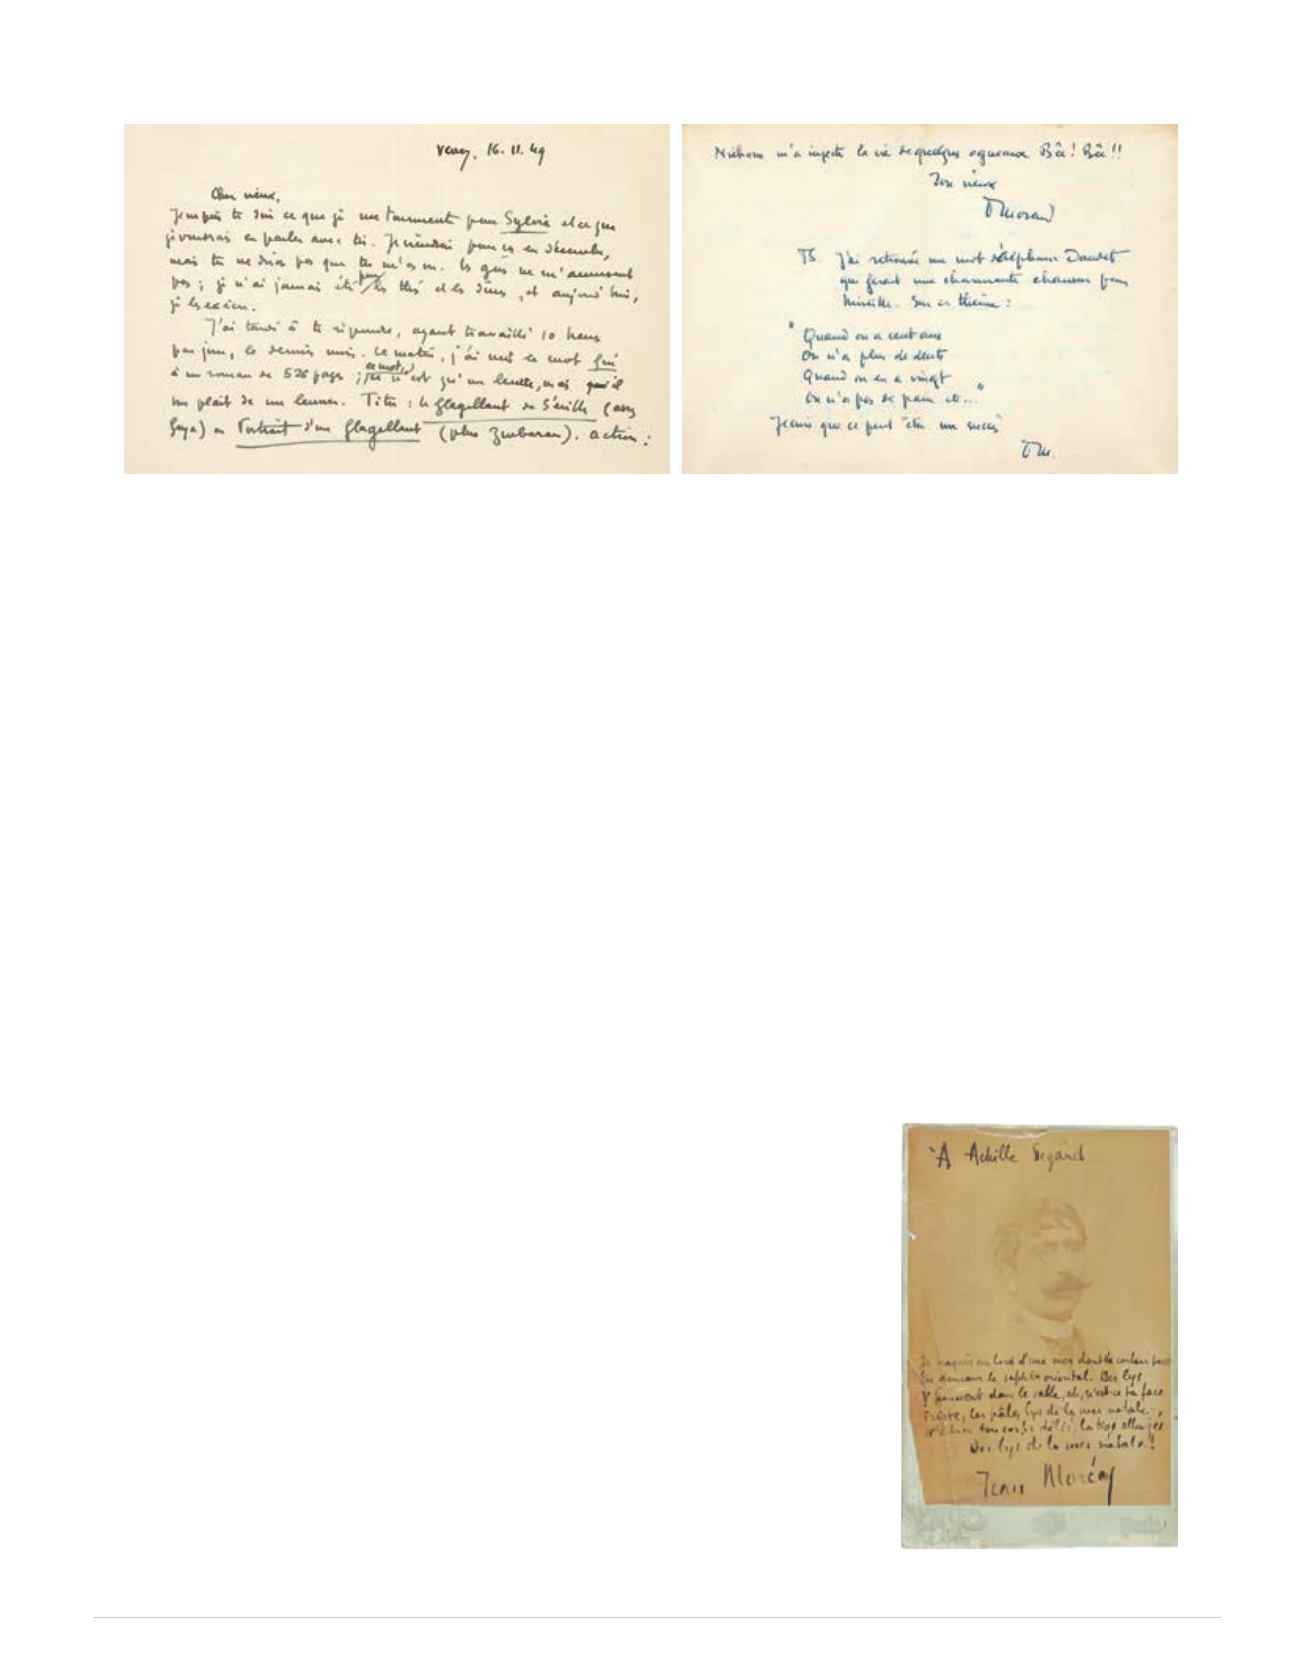 Vevey, 16.11.49
Cher vieux,
Je ne puis te dire ce que je me tourmente pour Sylvie et ce que
je voudrais en parler avec toi. Je viendrai pour ça en décembre,
mais tu ne diras pas que tu m'as vu. Les gens ne m'amusent
pas ; je n'ai jamais été pour les thés et les dîners, et aujourd'hui,
je les exècre.
J'ai tardé à te répondre, ayant travaillé 10 heures
par jour, le dernier mois. Ce matin, j'ai mis le mot fin
à un roman de 526 pages ; ce mot n'est qu'un leurre, mais qu'il
me plaît de me leurrer. Titre : le flagellant de Séville (assez
Goya) ou Portrait d'un flagellant (plus Zurbaran). Action :
Niehans m'a injecté la vie de quelques agneaux Bêe ! Bêe !!
Ton vieux
PMorand
PS. J'ai retrouvé un mot d'Alphonse Daudet
qui ferait une charmante chanson pour
Mireille. Sur ce thème :
"Quand on a cent ans
On n'a plus de dents
Quand on en a vingt
On n'a pas de pain etc..."
Je crois que ce peut être un succès
PM.
À Achille Segard
Je naquis au bord d'une mer dont la couleur passe
En douceur le saphir oriental. Des lys
Y poussent dans le sable, ah, n'est-ce ta face
Triste, les pâles lys de la mer natale,
N'est-ce ton corps délié, la tige allongée
Des lys de la mer natale !
Jean Moréas